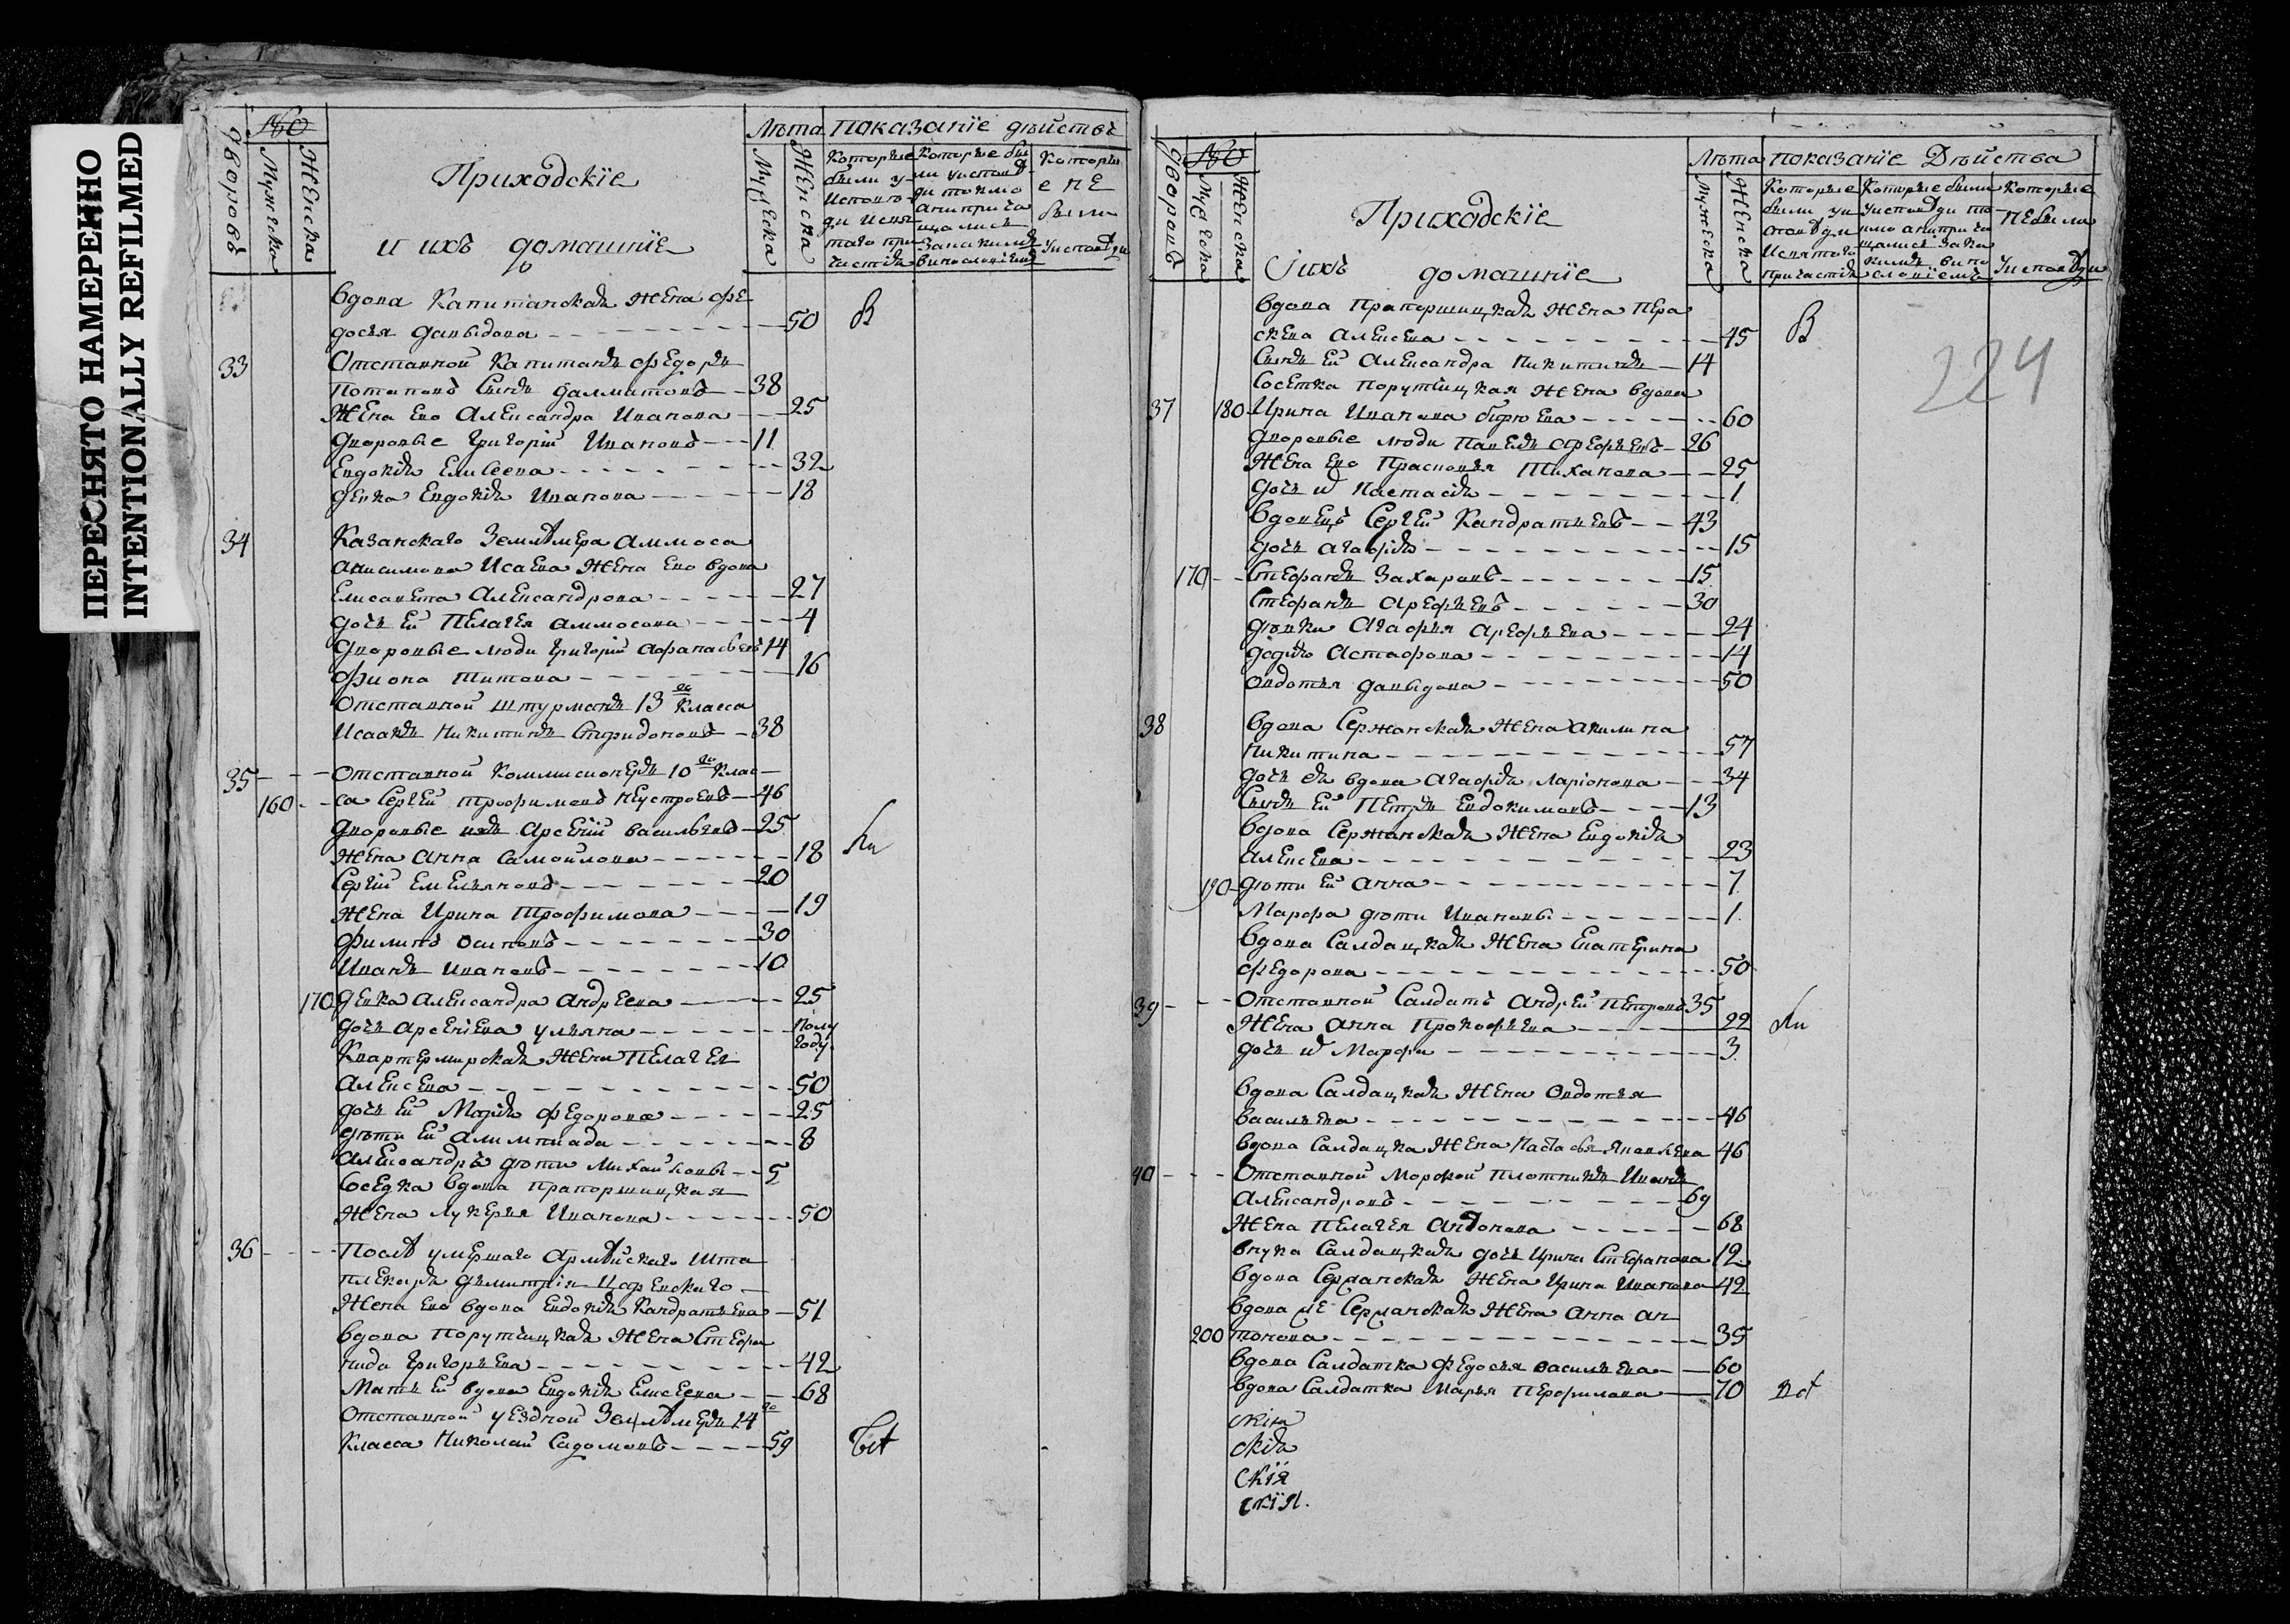 ПЕРЕСНЯТО НАМЕРЕННО
INTENTIONALLY REFILMED
дворовъ
№
Мужеска
Женска
Приходскїе
и ихъ домашнїе
Лѣта
Мужеска
Женска
показанїе дѣйствъ
Которые были у исповѣди и святаго причастїя
Которые были у исповѣди токмо а не причащались
Которые не были у исповѣди
вдова Капитанская жена Фе
досья Давыдова 50 В
33 Отставной Капитанъ Федоръ
Потаповъ Сынъ Далматовъ 38
Жена ево Александра Иванова 25
дворовые Григорїй Ивановъ 11
Евдокїя Елисеева 32
девка Евдокїя Иванова 18
34 Казанскаго Землѣмера Аммоса
Анисимова Исаева жена ево вдова
Елисавета Александрова 27
дочь ей Пелагея Аммосова 4
дворовые люди Григорїй Афанасьевъ 14
Фиона Титова 16
Отставной штурманъ 13 го класса
Исаакъ Никитинъ Спиридоновъ 38
35 Отставной Коммисионеръ 10 го клас
160 са Сергей Трофимовъ Неустроевъ 46
дворовые Арсенїй васильевъ 25
жена Анна Самойлова 18
Сергїй Емельяновъ 20
жена Ирина Трофимова 19
Филипъ Осиповъ 30
Иванъ Ивановъ 10
170 девка Александра Андреева 25
дочь Арсенїева Ульяна полу году
Квартермирская жена Пелагея
Алексева 50
дочь ей Марїя Федорова 25
дѣти ей Алимпиада 8
Александръ дѣти Михайловы 5
Соседка вдова прапорщицкая
жена Лукерья Иванова 50
36 Послѣ умершаго Армѣйскаго Шта
плекаря Дьмитрїя Цафенскаго
жена ево вдова Евдокїя Кандратьева 51
вдова порутчицкая жена Стефа
нида Григорьева 42
Мать ей вдова Евдокїя Елисеева 68
Отставной уездной Землѣмеръ 14 го
класса Николай Садомовъ 59
дворовъ
№
Мужеска
Женска
Приходскїе
и ихъ домашнїе
Лѣта
Мужеска
Женска
показанїе Дѣйства
Которые были у исповѣди и святаго причастїя
Которые были у исповѣди токмо а не причащались
Которые не были у исповѣди
224
вдова Прапорщицкая жена Пера
скева Алексева 45 В
Сынъ ей Александра Никитинъ 14
Соетка порутчицкая жена вдова
37 180 Ирина Иванова 60
дворовые люди Павелъ Арефьевъ 26
Жена ево Прасковья Тиханова 25
дочь и Настасїя 1
вдовецъ Сергей Кандратьевъ 43
дочь Агафїя 15
170 Стефанъ Захаровъ 15
Стефанъ Арефьевъ 30
дѣвки Агафья Арефьева 24
Астафова 14
Овдотья Давыдова 50
38 вдова Сержанская жена Акилина
Никитина 57
дочь ея вдова Агафїя Ларїонова 34
Сынъ ей Петръ Евдокимовъ 13
вдова Сержанская жена Евдокїя
Алексева 23
190 дѣти ей Анна 7
Марфа дѣти Ивановы 1
вдова Салдацкая жена Екатерина
Федорова 50
39 Отставной Салдатъ Андрей Петровъ 35
Жена Анна Прокофьева 22
дочь и Марфа 3
вдова Салдацкая жена Овдотья
васильева 46
вдова Салдацка жена Настасья Яковлева 46
40 Отставной Морской плотникъ Иванъ
Александровъ 69
жена Пелагея Антонова 68
внука Салдацкая дочь Ирина Стефанова 12
вдова Сержанская жена Ирина Иванова 42
вдова же Сержанская жена Анна Ан
200 тонова 35
вдова Салдатка Федосья васильева 60
вдова Салдатка Марья Перфилова 70
скїя
скїя
скїя
скїя.